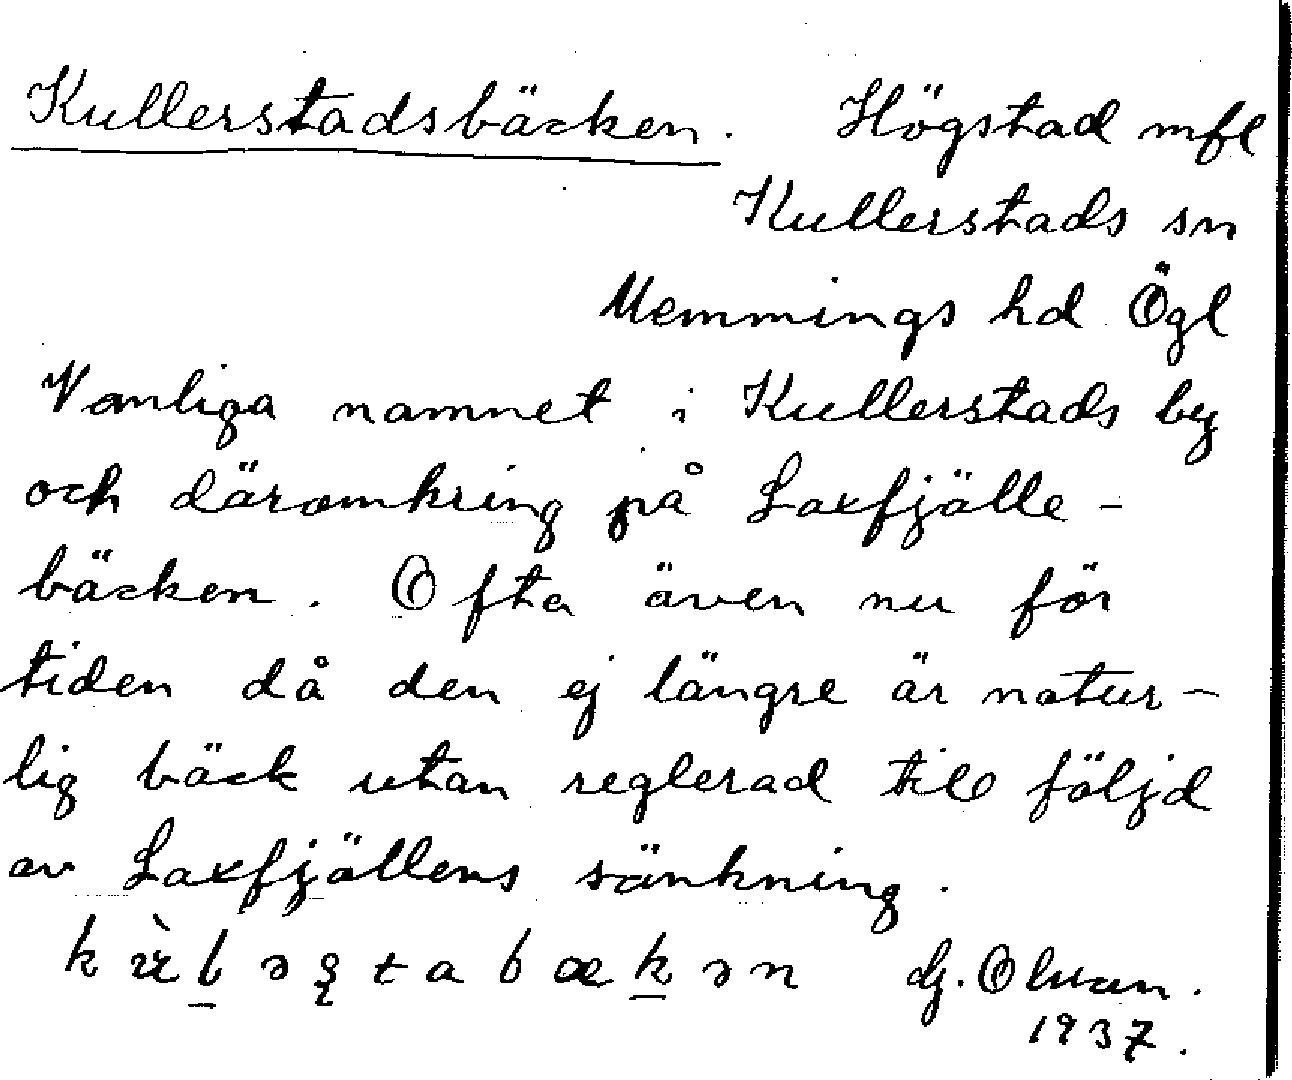 Kullerstadsbäcken. Högstad mfl
Kullerstads sn
Memmings hd Ögl
Vanliga namnet i Kullerstads by
och däromkring på Laxfjälle-
bäcken. Ofta även nu för
tiden då den ej längre är natur-
lig bäck utan reglerad till följd
av Laxfjällens sänkning.
G. Olsson.
1937.